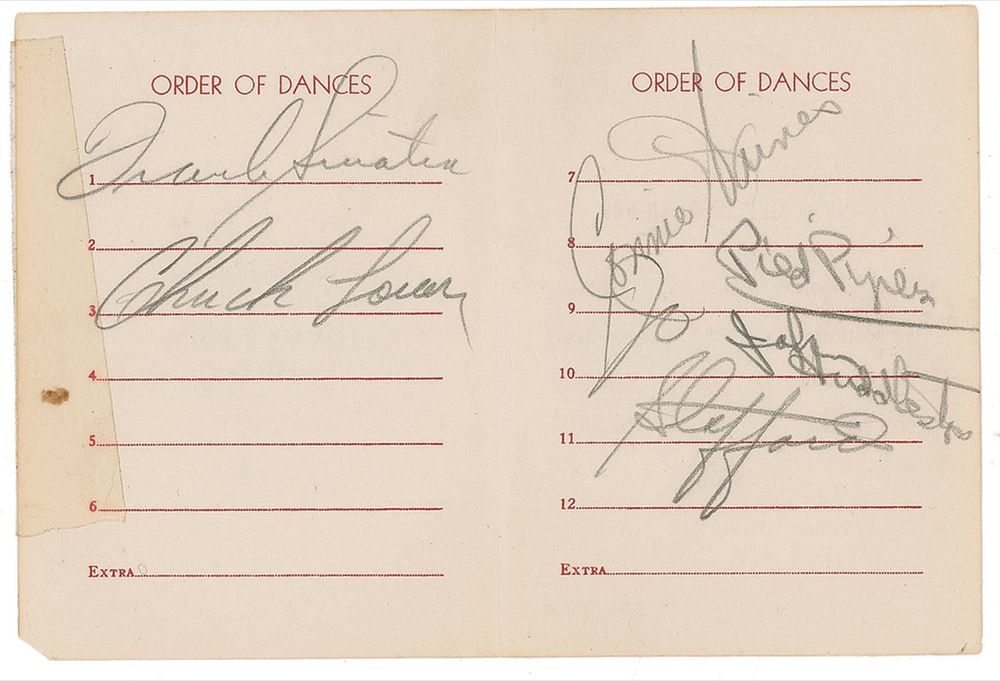 ORDER OF DANCES
Frank Sinatra
1
2
Chuck Lowry
3
4
5
6
EXTRA
ORDER OF DANCES
Connie Haines
7
8
Pied Pipers
9
Jo Stafford
John Huddleston
10
11
12
EXTRA